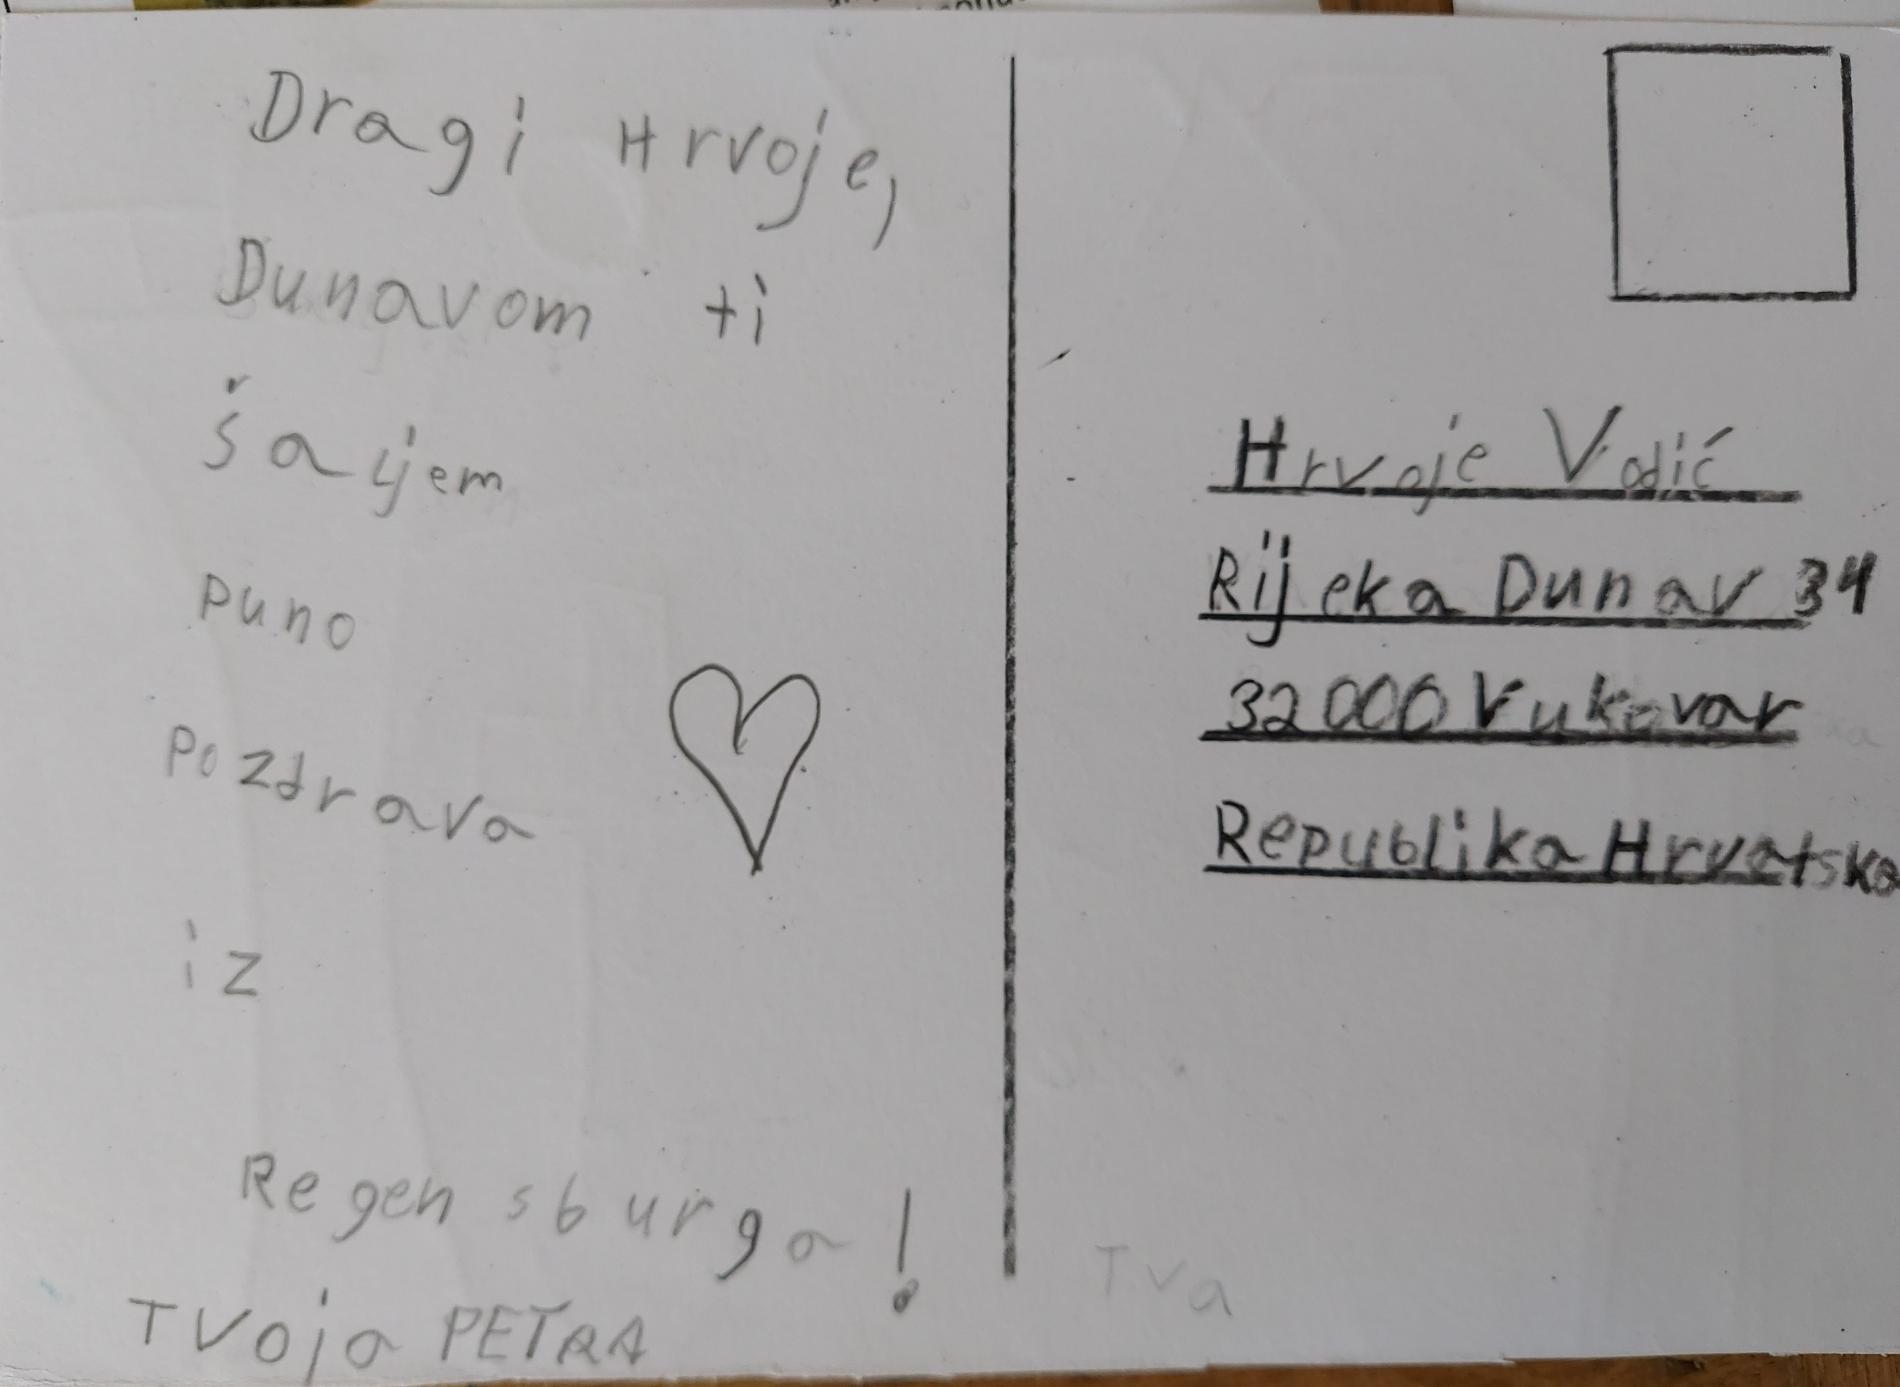 Dragi Hrvoje,
Dunavom ti
šaljem
puno
Pozdrava
iz
Regensburga!
Tvoja PETRA
Hrvoje Vodić
Rijeka Dunav 34
32000 Vukovar
Republika Hrvatska
Tva